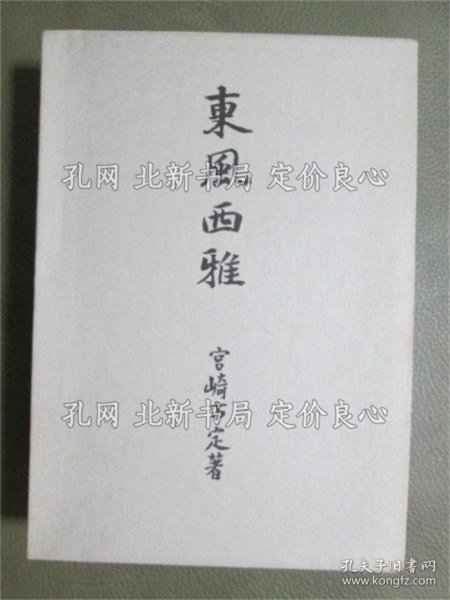 東風西雅
宮崎市定著
孔网 北新书局 定价良心
孔网 北新书局 定价良心
孔网 北新书局 定价良心
孔夫子旧书网
www.kongfz.com